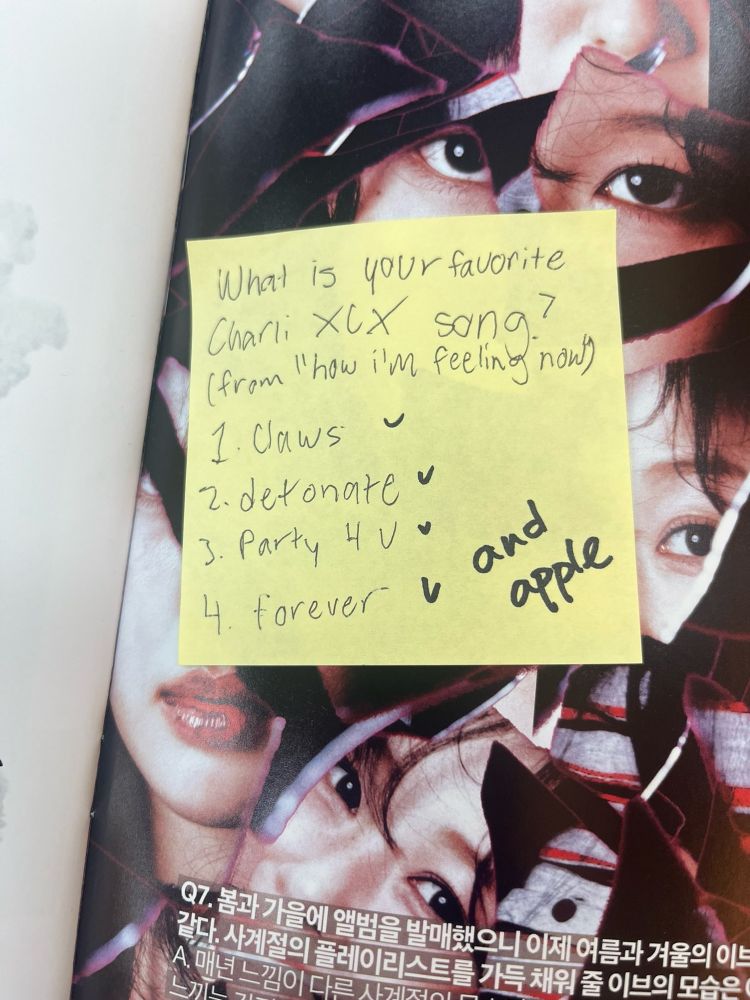 What is your favorite
Charli XCX song?
(from "how i'm feeling now")
1. Claws ✓
2. detonate ✓
3. Party 4 U ✓
4. forever ✓
and
apple
Q7. 봄과 가을에 앨범을 발매했으니 이제 여름과 겨울의 이브
같다. 사계절의 플레이리스트를 가득 채워 줄 이브의 모습은
A. 매년 느낌이 다른 사계절의